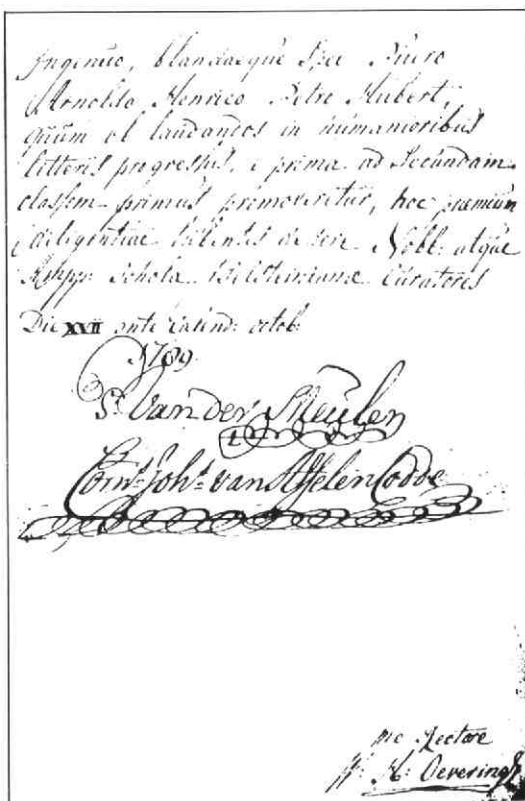 Ingenuo, blandaeque Spei Puero
Arnoldo Henrico Petro Hubert,
quum ob laudandos in humanioribus
litteris progressus, e prima ad Secundam
classem primus promoveretur, hoc praemium
diligentiae libentes dedere Nobb: atque
Ampp: Scholae Curatores
Die XVII ante Calend: octob:
1789
S. Van der Meulen
Corns. Johs. van Asselen Codde
me Rectore
H: Oevering